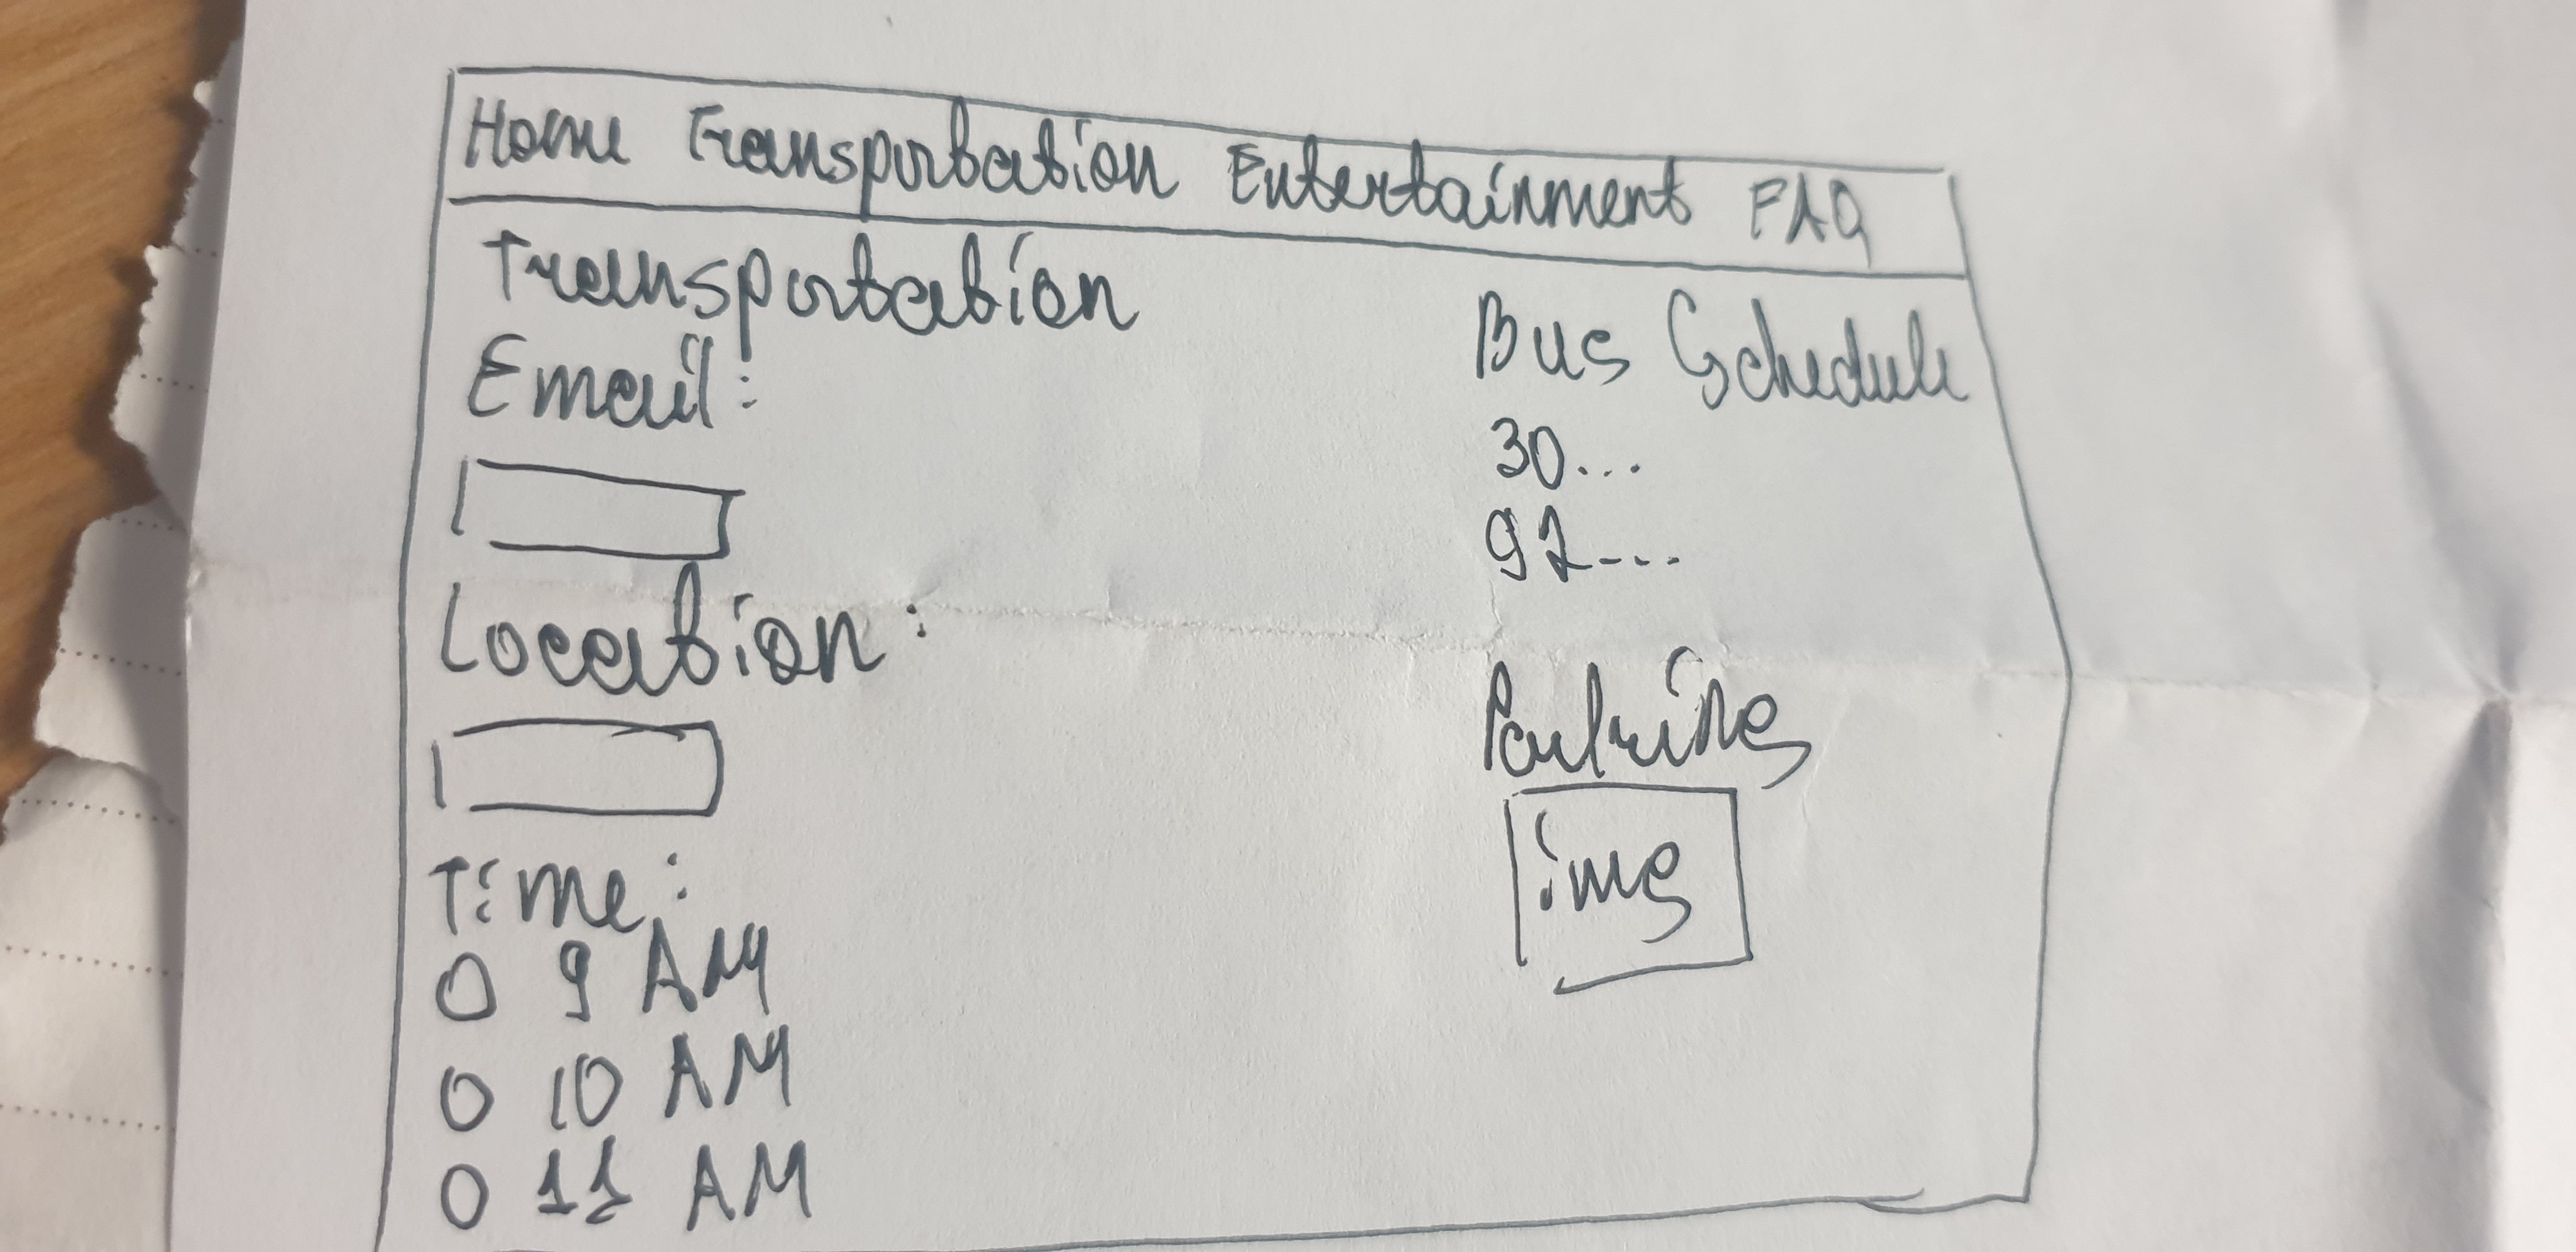 Home Transportation Entertainment FAQ
Transportation
Email:
Location:
Time:
O 9 AM
O 10 AM
O 11 AM
Bus Schedule
30...
92...
Parking
img